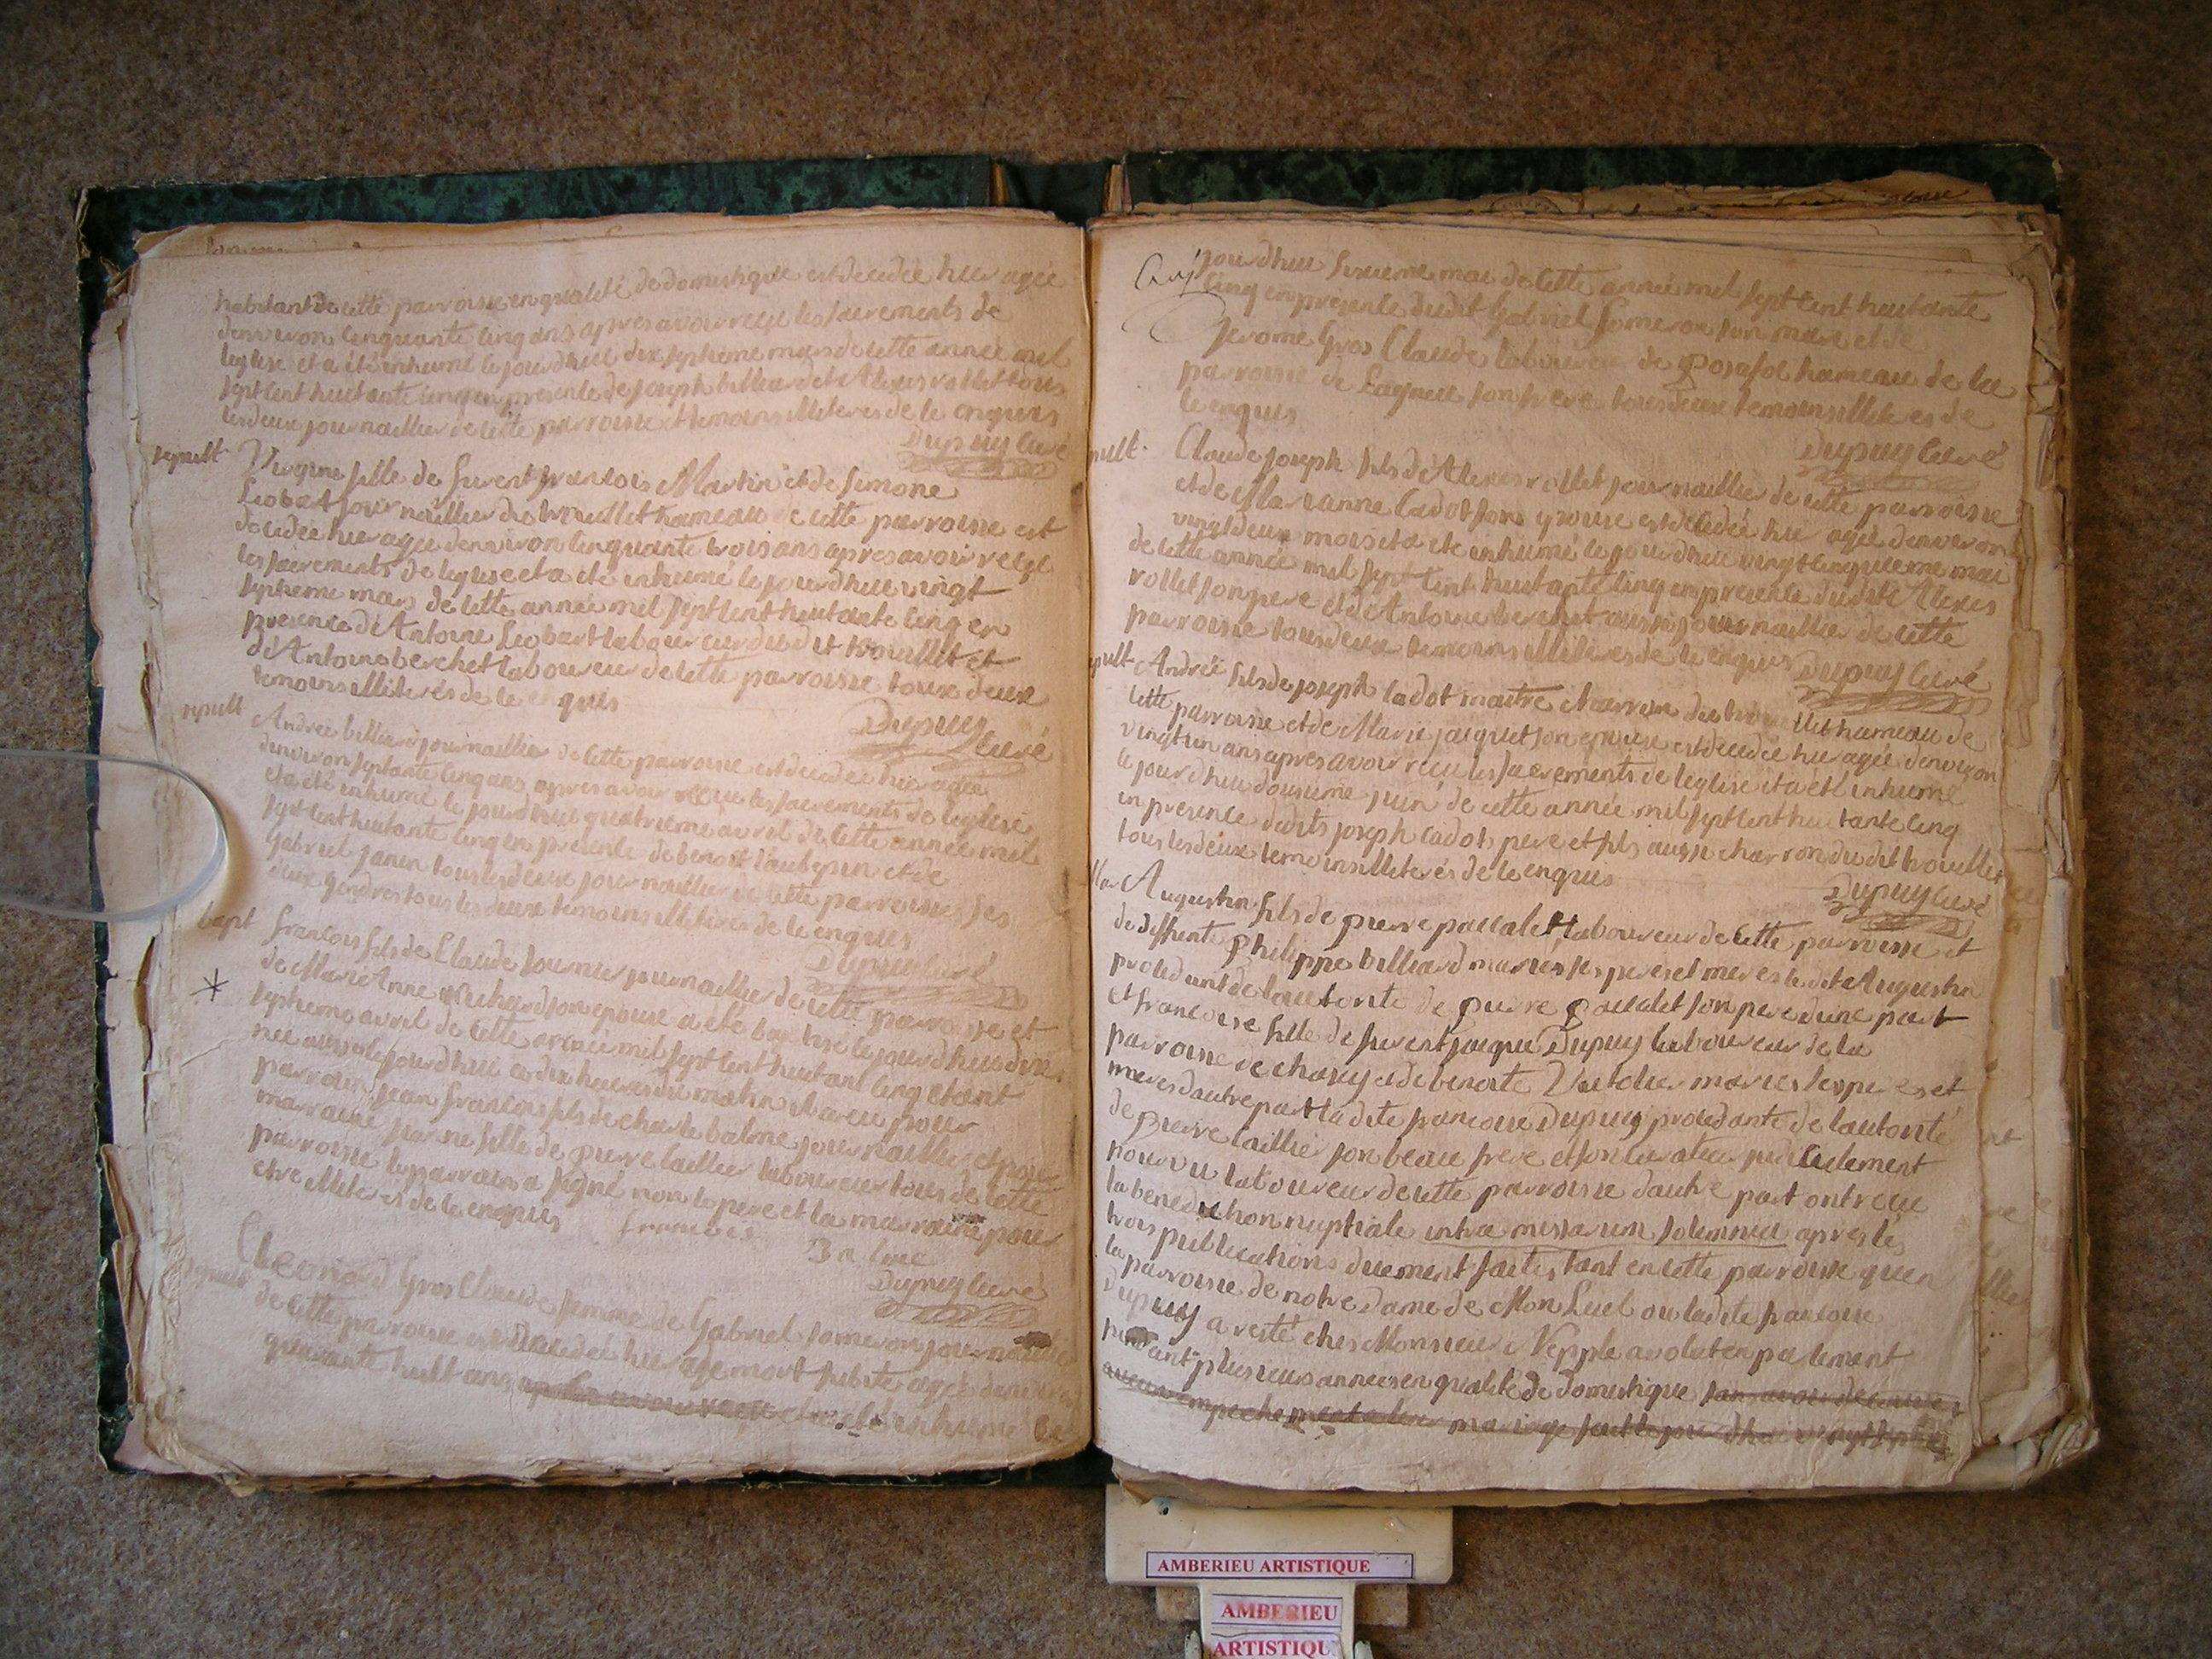 habitant de cette parroisse en qualité de domestique est decedée hier agée
denviron cinquante cinq ans apres avoir reçu les sacrements de
leglise et a été inhumé le jourdhui dix septieme mars de cette année mil
sept cent huitante cinq en presence de joseph billiard et Alexis rollet tous
les deux journaillier de cette parroisse temoins illiterés de ce enquis
Dupuy curé
sepult
fille de fuent françois Martin et de Simone
Leobart journaillier du trouillet hameau de cette parroisse est
decedée hier agée denviron cinquante trois ans apres avoir reçu
les sacrements de leglise et a été inhumé le jourdhui vingt
septieme mars de cette année mil sept cent huitante cinq en
presence d'Antoine Leobart laboureur dudit trouillet et
d'Antoine berchet laboureur de cette parroisse tous deux
temoins illiterés de ce enquis
Dupuy curé
sepult
Andrée billiard journaillier de cette parroisse est decedée hier agée
denviron septante cinq ans apres avoir reçu les sacrements de leglise
et a été inhumé le jourdhui quatrieme avril de cette année mil
sept cent huitante cinq en presence de benoit laubepin et de
Gabriel janin tous les deux journaillier de cette parroisse ses
deux gendres tous les deux temoins illiterés de ce enquis
Dupuy curé
bapt
françois fils de Claude fournier journaillier de cette parroisse et
de Marie Anne richard son epouse a été baptisé le jourdhui dix
septieme avril de cette année mil sept cent huitant cinq etant
né aussi le jourdhui a dix heures du matin il a eu pour
parrain jean françois fils de charle balme journaillier et pour
marraine fille de pierre caillier laboureur tous de cette
parroisse le parrain a signé non le pere et la marraine pour
etre illiterés de ce enquis francois
Balme
Dupuy curé
sepult
Gros Claude femme de Gabriel someron journaillier
de cette parroisse est decedée hier de mort subite agée denviron
quarante huit ans apres avoir reçu et a été inhumé le
jourdhui sixieme mai de cette année mil sept cent huitante
cinq en presence dudit Gabriel someron son mari et de
jerome Gros Claude laboureur de posafol hameau de la
parroisse de Lagneu son frere tous deux temoins illiterés de
ce enquis
Dupuy curé
sepult
Claude joseph fils d'Alexis rollet journaillier de cette parroisse
et de Marianne Cadot son epouse est decedée hier agé denviron
vingt deux mois et a été inhumé le jourdhui vingt cinquieme mai
de cette année mil sept cent huitante cinq en presence dudit Alexis
rollet son pere et d'Antoine berchet aussi journaillier de cette
parroisse tous deux temoins illiterés de ce enquis Dupuy curé
sepult
André fils de joseph cadot maitre charron du trouillet hameau de
cette parroisse et de Marie jacquet son epouse est decedée hier agée denviron
vingt un ans apres avoir reçu les sacrements de leglise et a été inhumé
le jourdhui douzieme juin de cette année mil sept cent huitante cinq
en presence dudits joseph cadots pere et fils aussi charron dudit trouillet
tous les deux temoins illiterés de ce enquis
Dupuy curé
Mar
Augustin fils de pierre paccalet laboureur de cette parroisse et
de deffunte Philippe billiard mariés ses peres et meres le dit Augustin
procedant de lautorité de pierre paccalet son pere dune part
et francoise fille de fuent jacque Dupuy laboureur de la
parroisse de charey et de benoite Vautelier mariés ses peres et
meres dautre part la dite francoise Dupuy procedante de lautorité
de pierre caillier son beau frere et son curateur judiciellement
pourvu laboureur de cette parroisse dautre part ont reçu
la benediction nuptiale intra missarum solemnia apres les
trois publications duement faites tant en cette parroisse quen
la parroisse de notre Dame de MonLuel ou ladite francoise
Dupuy a resté chez Monsieur Nepple avolat en parlement
pendant plusieurs années en qualité de domestique sans avoir decouvert
aucun empechement a leur mariage fait le jourdhui vingt
AMBERIEU ARTISTIQUE
AMBERIEU
ARTISTIQU